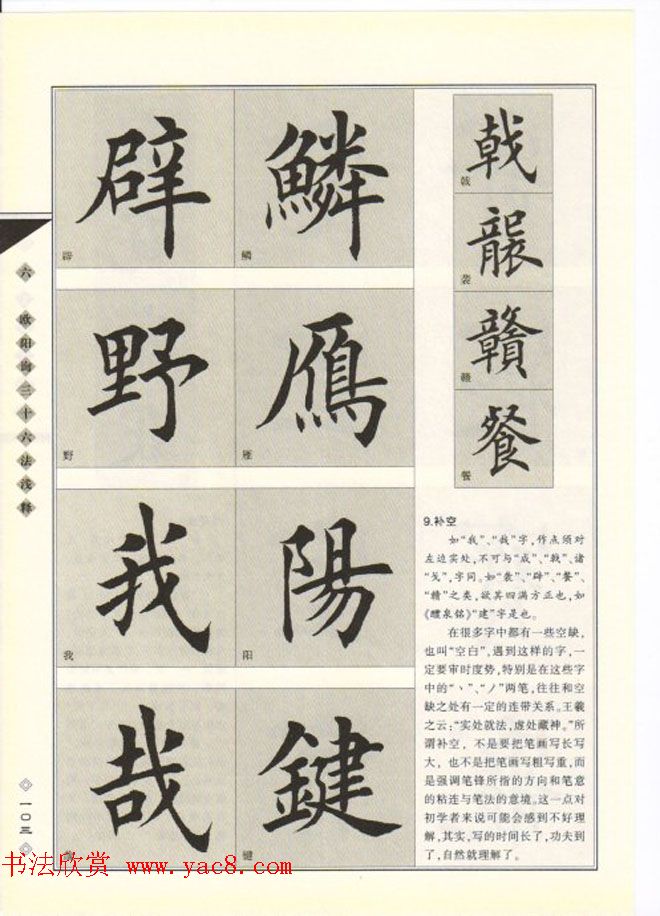 六
欧阳询三十六法浅释
一〇三
辟
鳞
辟
鳞
野
雁
野
雁
我
陽
我
阳
哉
鍵
键
戟
戟
袭
赣
赣
餐
餐
9.补空
如“我”、“哉”字，作点须对
左边实处，不可与“成”、“戟”、诸
“戈”，字同。如“袭”、“辟”、“餐”、
“赣”之类，欲其四满方正也，如
《醴泉铭》“建”字是也。
在很多字中都有一些空缺，
也叫“空白”，遇到这样的字，一
定要审时度势，特别是在这些字
中的“丶”、“丿”两笔，往往和空
缺之处有一定的连带关系。王羲
之云：“实处就法，虚处藏神。”所
谓补空，不是要把笔画写长写
大，也不是把笔画写粗写重，而
是强调笔锋所指的方向和笔意
的粘连与笔法的意境。这一点对
初学者来说可能会感到不好理
解，其实，写的时间长了，功夫到
了，自然就理解了。
书法欣赏 www.yac8.com